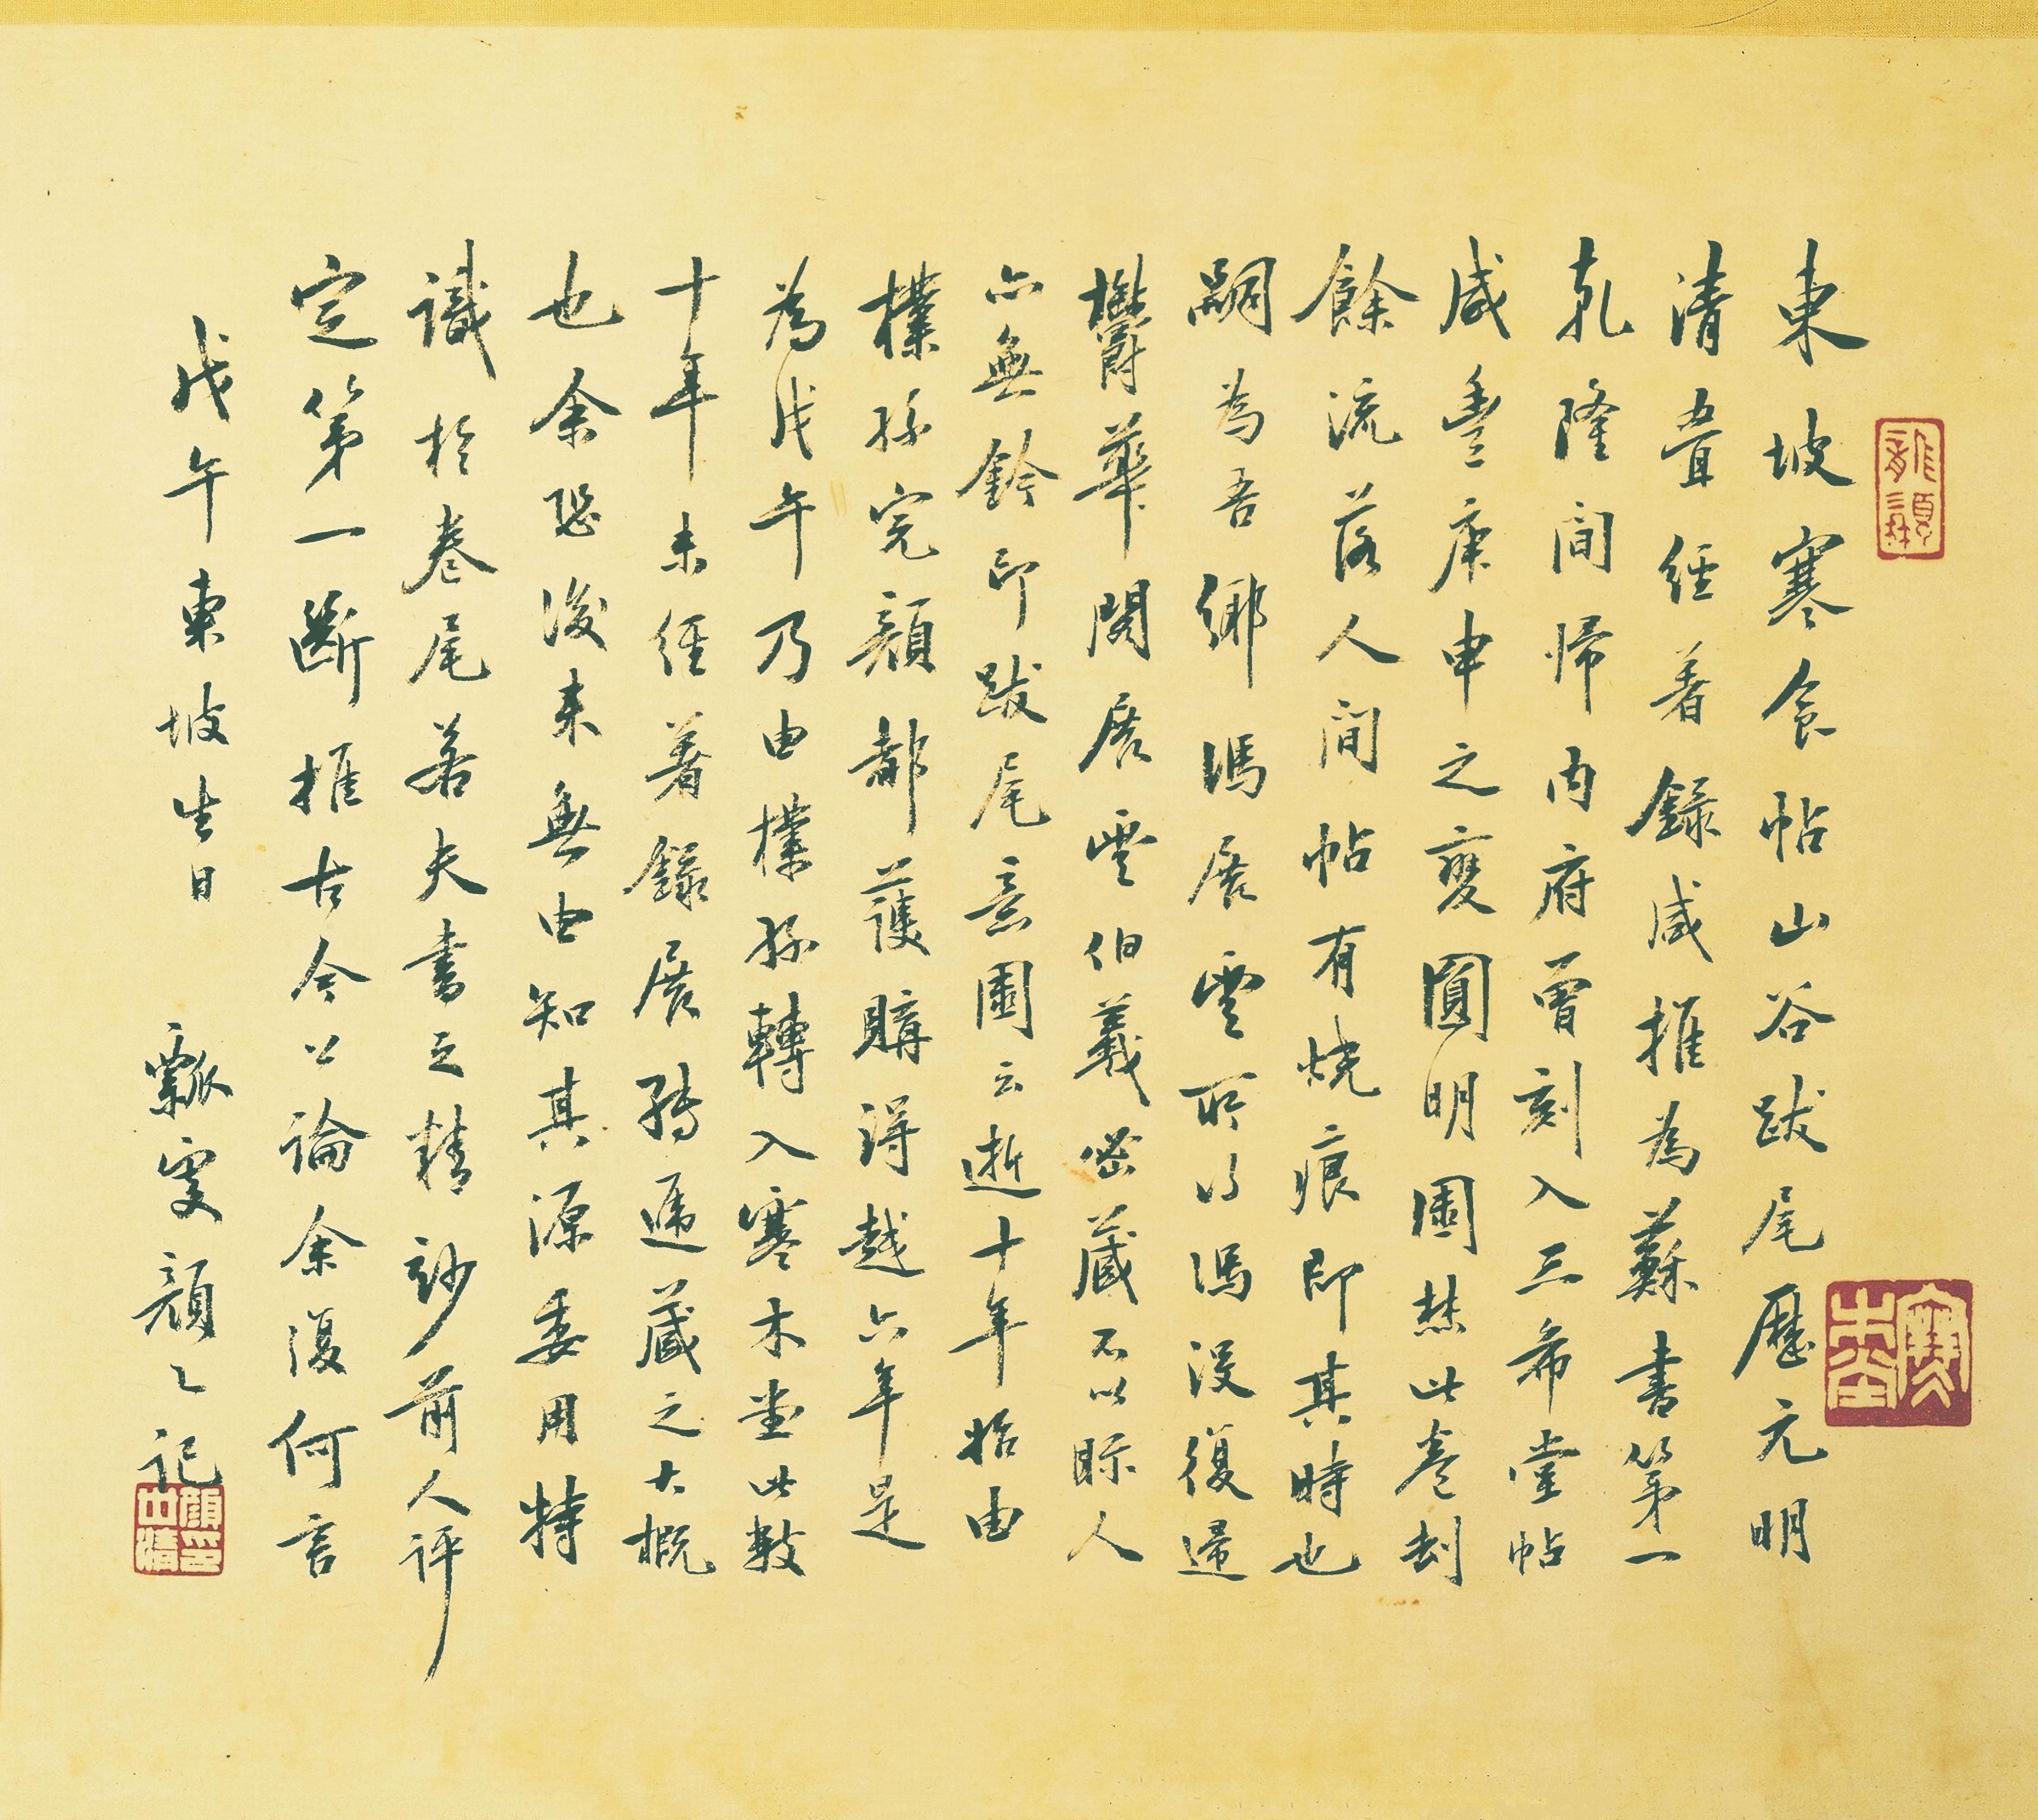 東坡寒食帖山谷跋尾歷元明
清疊經著錄咸推為蘇書第一
乾隆間歸內府曾刻入三希堂帖
咸豐庚申之變圓明園焚此卷刦
餘流落人間帖有燒痕即其時也
嗣為吾鄉馮展雲所得馮沒復歸
鬱華閣展雲伯羲密藏不以眎人
亦無鈐印跋尾意園云逝十年始由
樸孫完顏都護購得越六年是
為戊午乃由樸孫轉入寒木堂此數
十年未經著錄展轉遞藏之大概
也余恐後來無由知其源委用特
識於卷尾若夫書之精玅前人評
定第一斷推古今公論余復何言
戊午東坡生日 瓢叟顏〻記
寒木堂
顏世清印